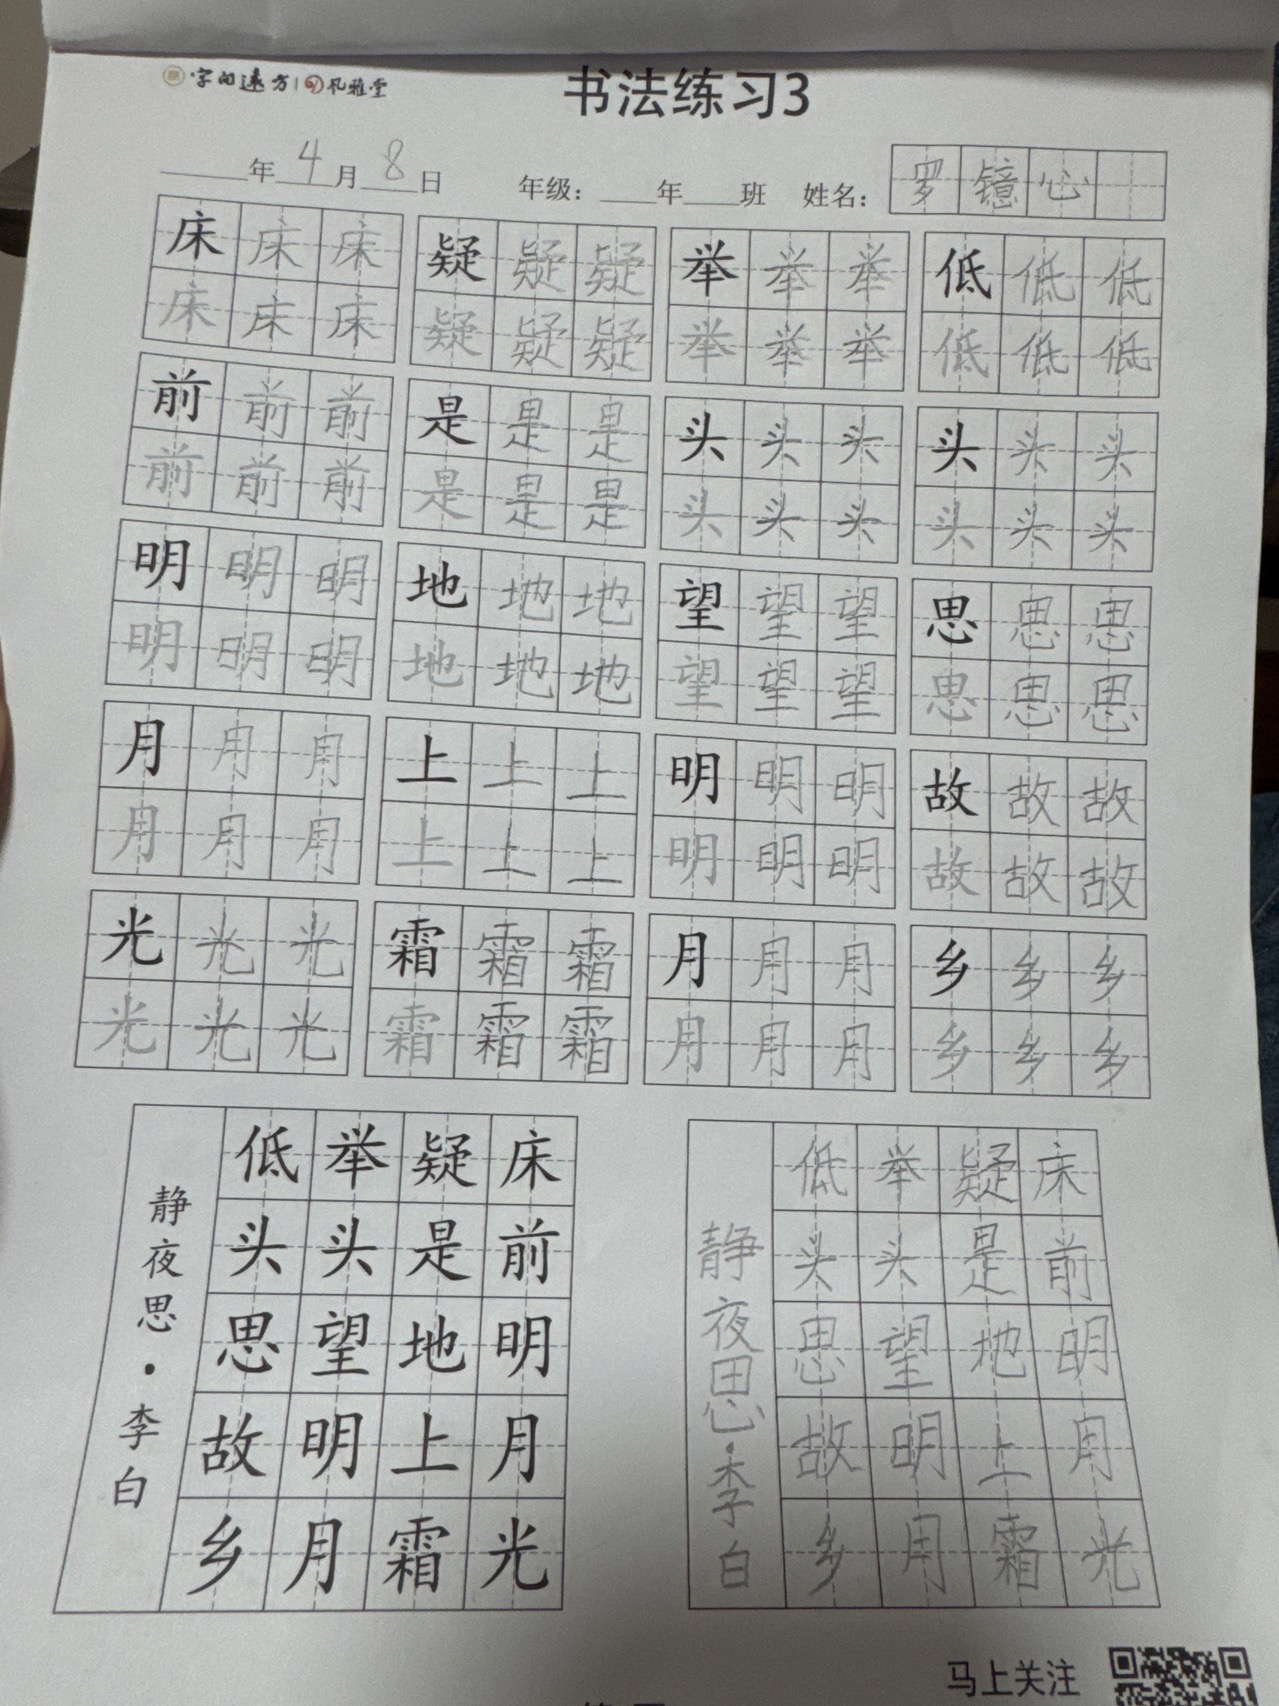 字向远方 | 孔雅堂
书法练习3
年4月8日 年级：年班 姓名：罗镜心
床床床 疑疑疑 举举举 低低低
床床床 疑疑疑 举举举 低低低
前前前 是是是 头头头 头头头
前前前 是是是 头头头 头头头
明明明 地地地 望望望 思思思
明明明 地地地 望望望 思思思
月月月 上上上 明明明 故故故
月月月 上上上 明明明 故故故
光光光 霜霜霜 月月月 乡乡乡
光光光 霜霜霜 月月月 乡乡乡
床前明月光
疑是地上霜
举头望明月
低头思故乡
静夜思·李白
床前明月光
疑是地上霜
举头望明月
低头思故乡
静夜思·李白
马上关注